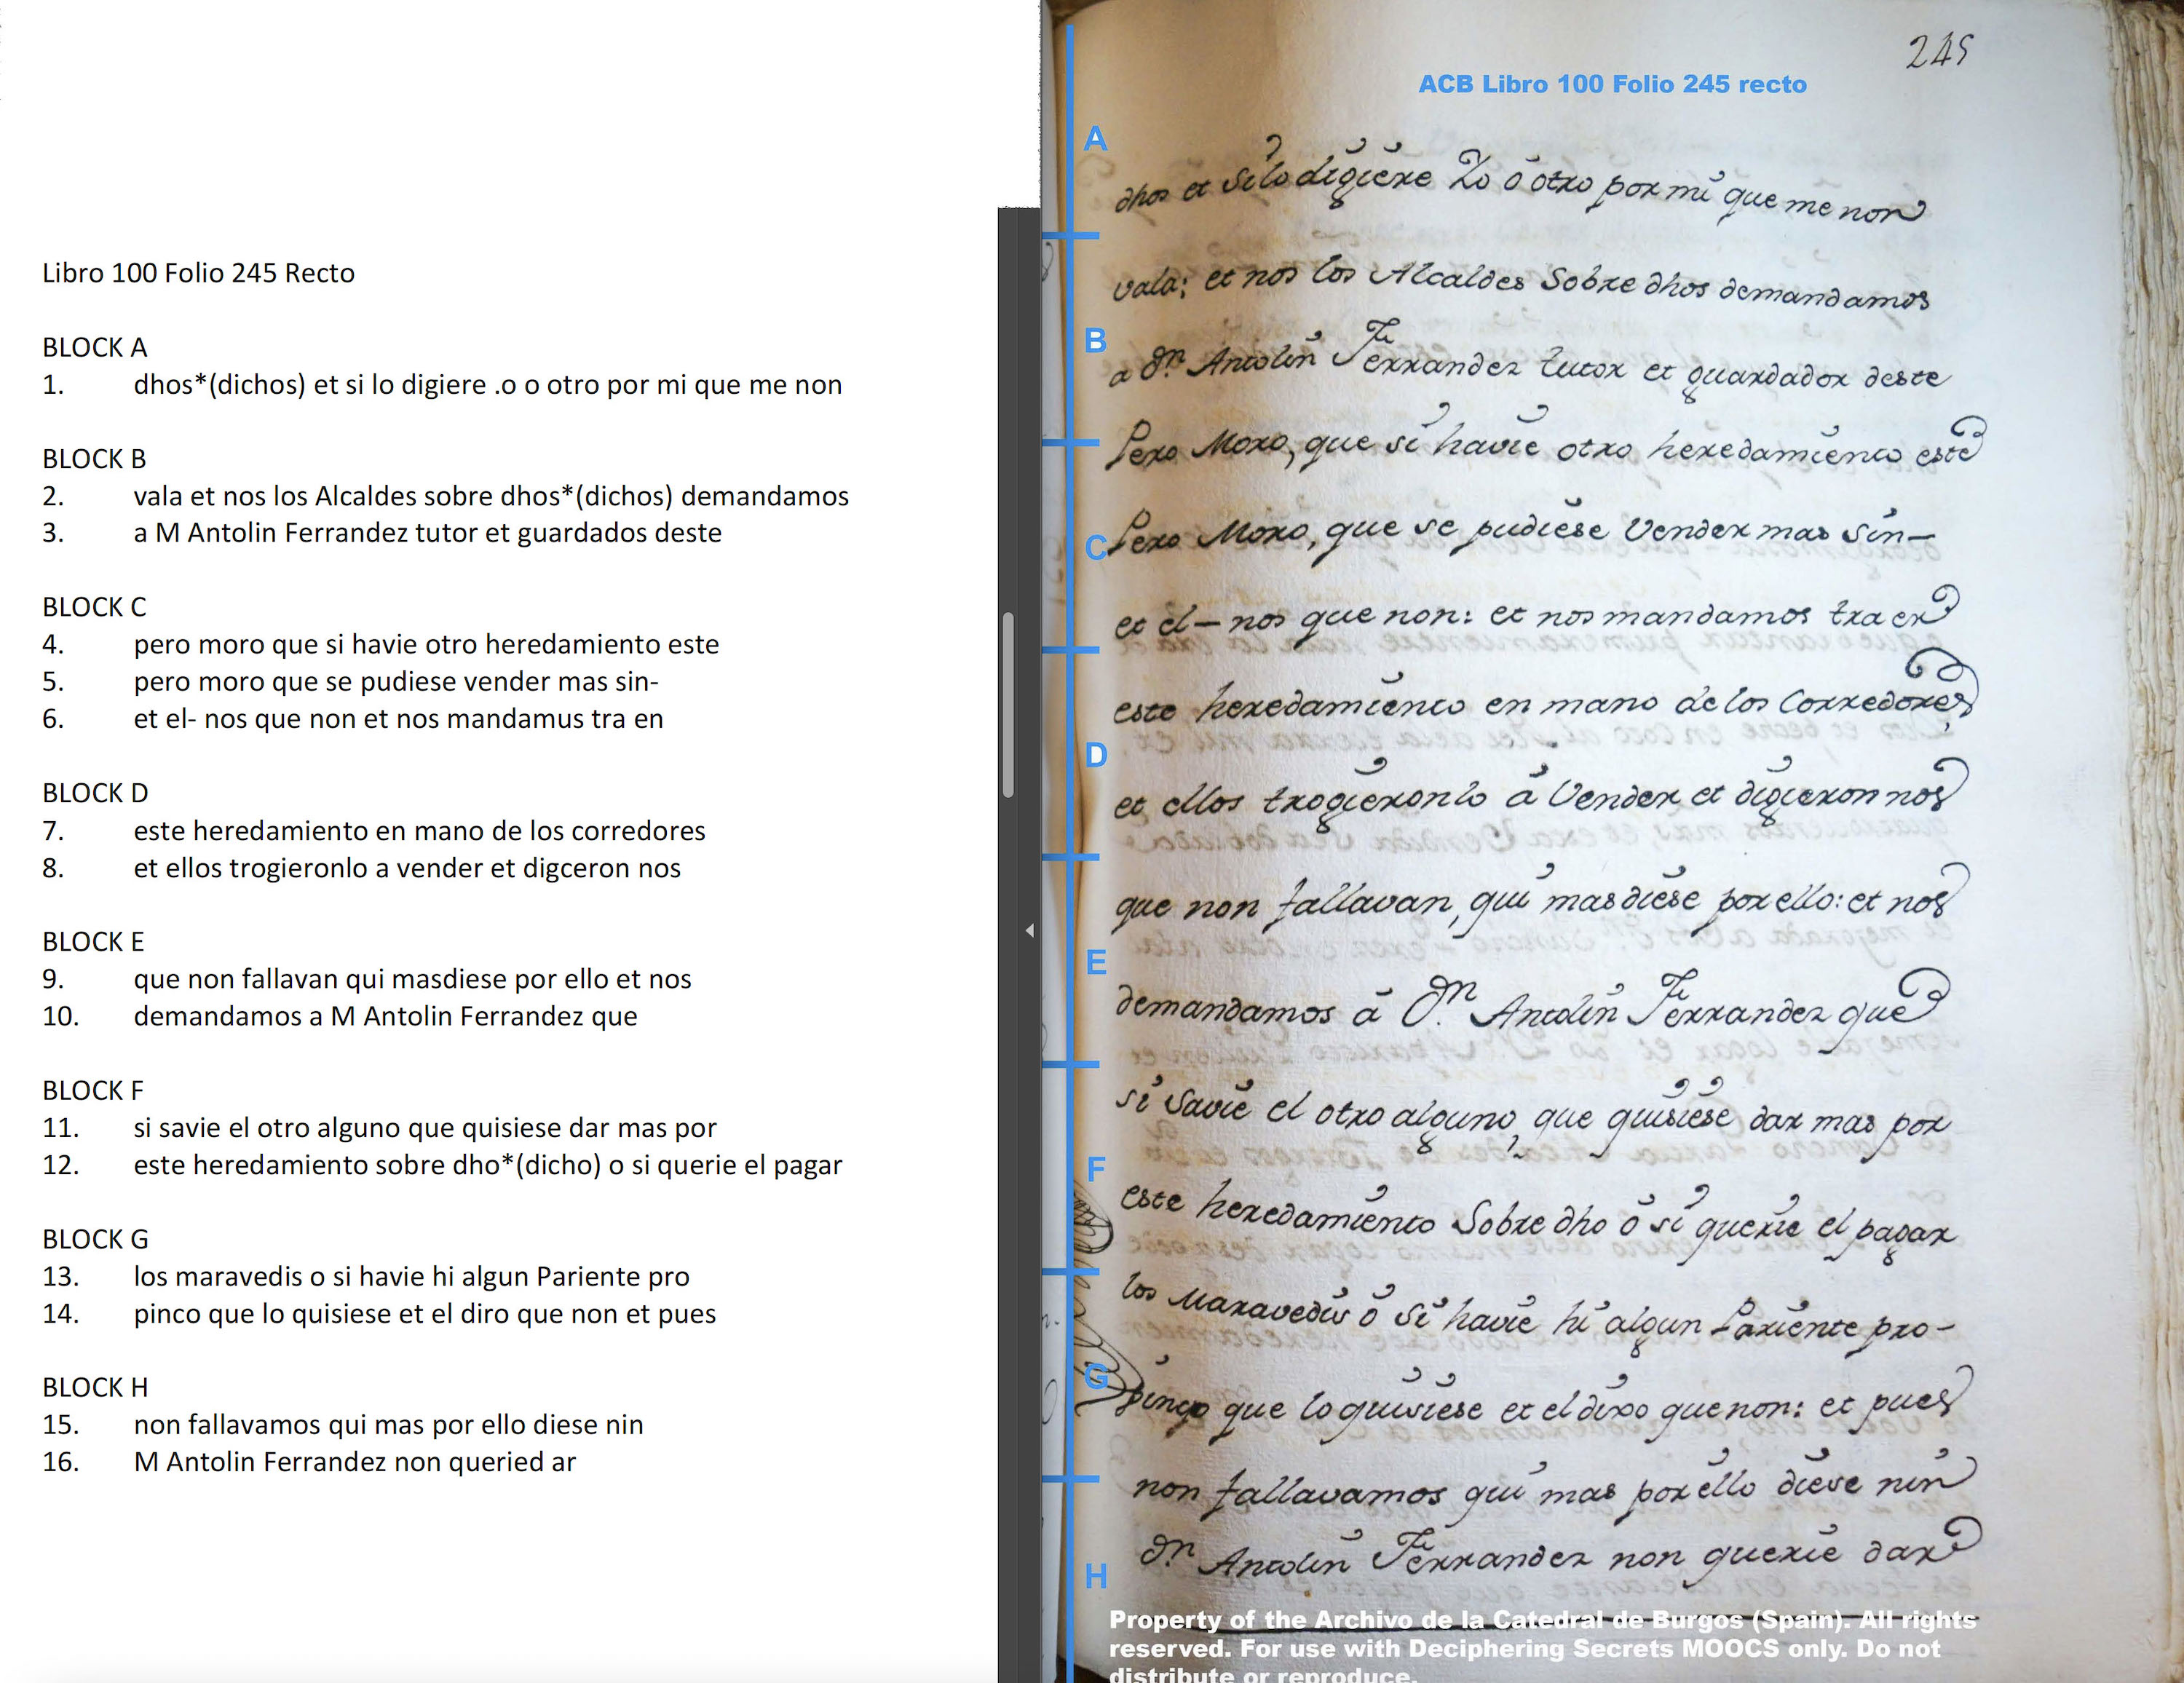 Libro 100 Folio 245 Recto
BLOCK A
1. dhos*(dichos) et si lo digiere .o o otro por mi que me non
BLOCK B
2. vala et nos los Alcaldes sobre dhos*(dichos) demandamos
3. a M Antolin Ferrandez tutor et guardados deste
BLOCK C
4. pero moro que si havie otro heredamiento este
5. pero moro que se pudiese vender mas sin-
6. et el- nos que non et nos mandamus tra en
BLOCK D
7. este heredamiento en mano de los corredores
8. et ellos trogieronlo a vender et digceron nos
BLOCK E
9. que non fallavan qui masdiese por ello et nos
10. demandamos a M Antolin Ferrandez que
BLOCK F
11. si savie el otro alguno que quisiese dar mas por
12. este heredamiento sobre dho*(dicho) o si querie el pagar
BLOCK G
13. los maravedis o si havie hi algun Pariente pro
14. pinco que lo quisiese et el diro que non et pues
BLOCK H
15. non fallavamos qui mas por ello diese nin
16. M Antolin Ferrandez non queried ar
245
ACB Libro 100 Folio 245 recto
A
dhos et si lo digiere Yo ó otro por mi que me non
vala; et nos los Alcaldes Sobre dhos demandamos
B
a Dn. Antolin Ferrandez tutor et guardador deste
Pero Moro, que si havie otro heredamiento este
C
Pero Moro, que se pudiese Vender mas sin-
et el- nos que non: et nos mandamos traer
este heredamiento en mano de los Corredores
D
et ellos trogieronlo á Vender et digieron nos
que non fallavan, qui mas diese por ello: et nos
E
demandamos á Dn. Antolin Ferrandez que
si Savie el otro alguno, que quisiese dar mas por
F
este heredamiento Sobre dho ó si querie el pagar
los Maravedis ó Si havie hi algun Pariente pro-
G
pinco que lo quisiese et el dixo que non: et pues
non fallavamos qui mas por ello diese nin
H
Dn Antolin Ferrandez non querie dar
Property of the Archivo de la Catedral de Burgos (Spain). All rights
reserved. For use with Deciphering Secrets MOOCS only. Do not
distribute or reproduce.